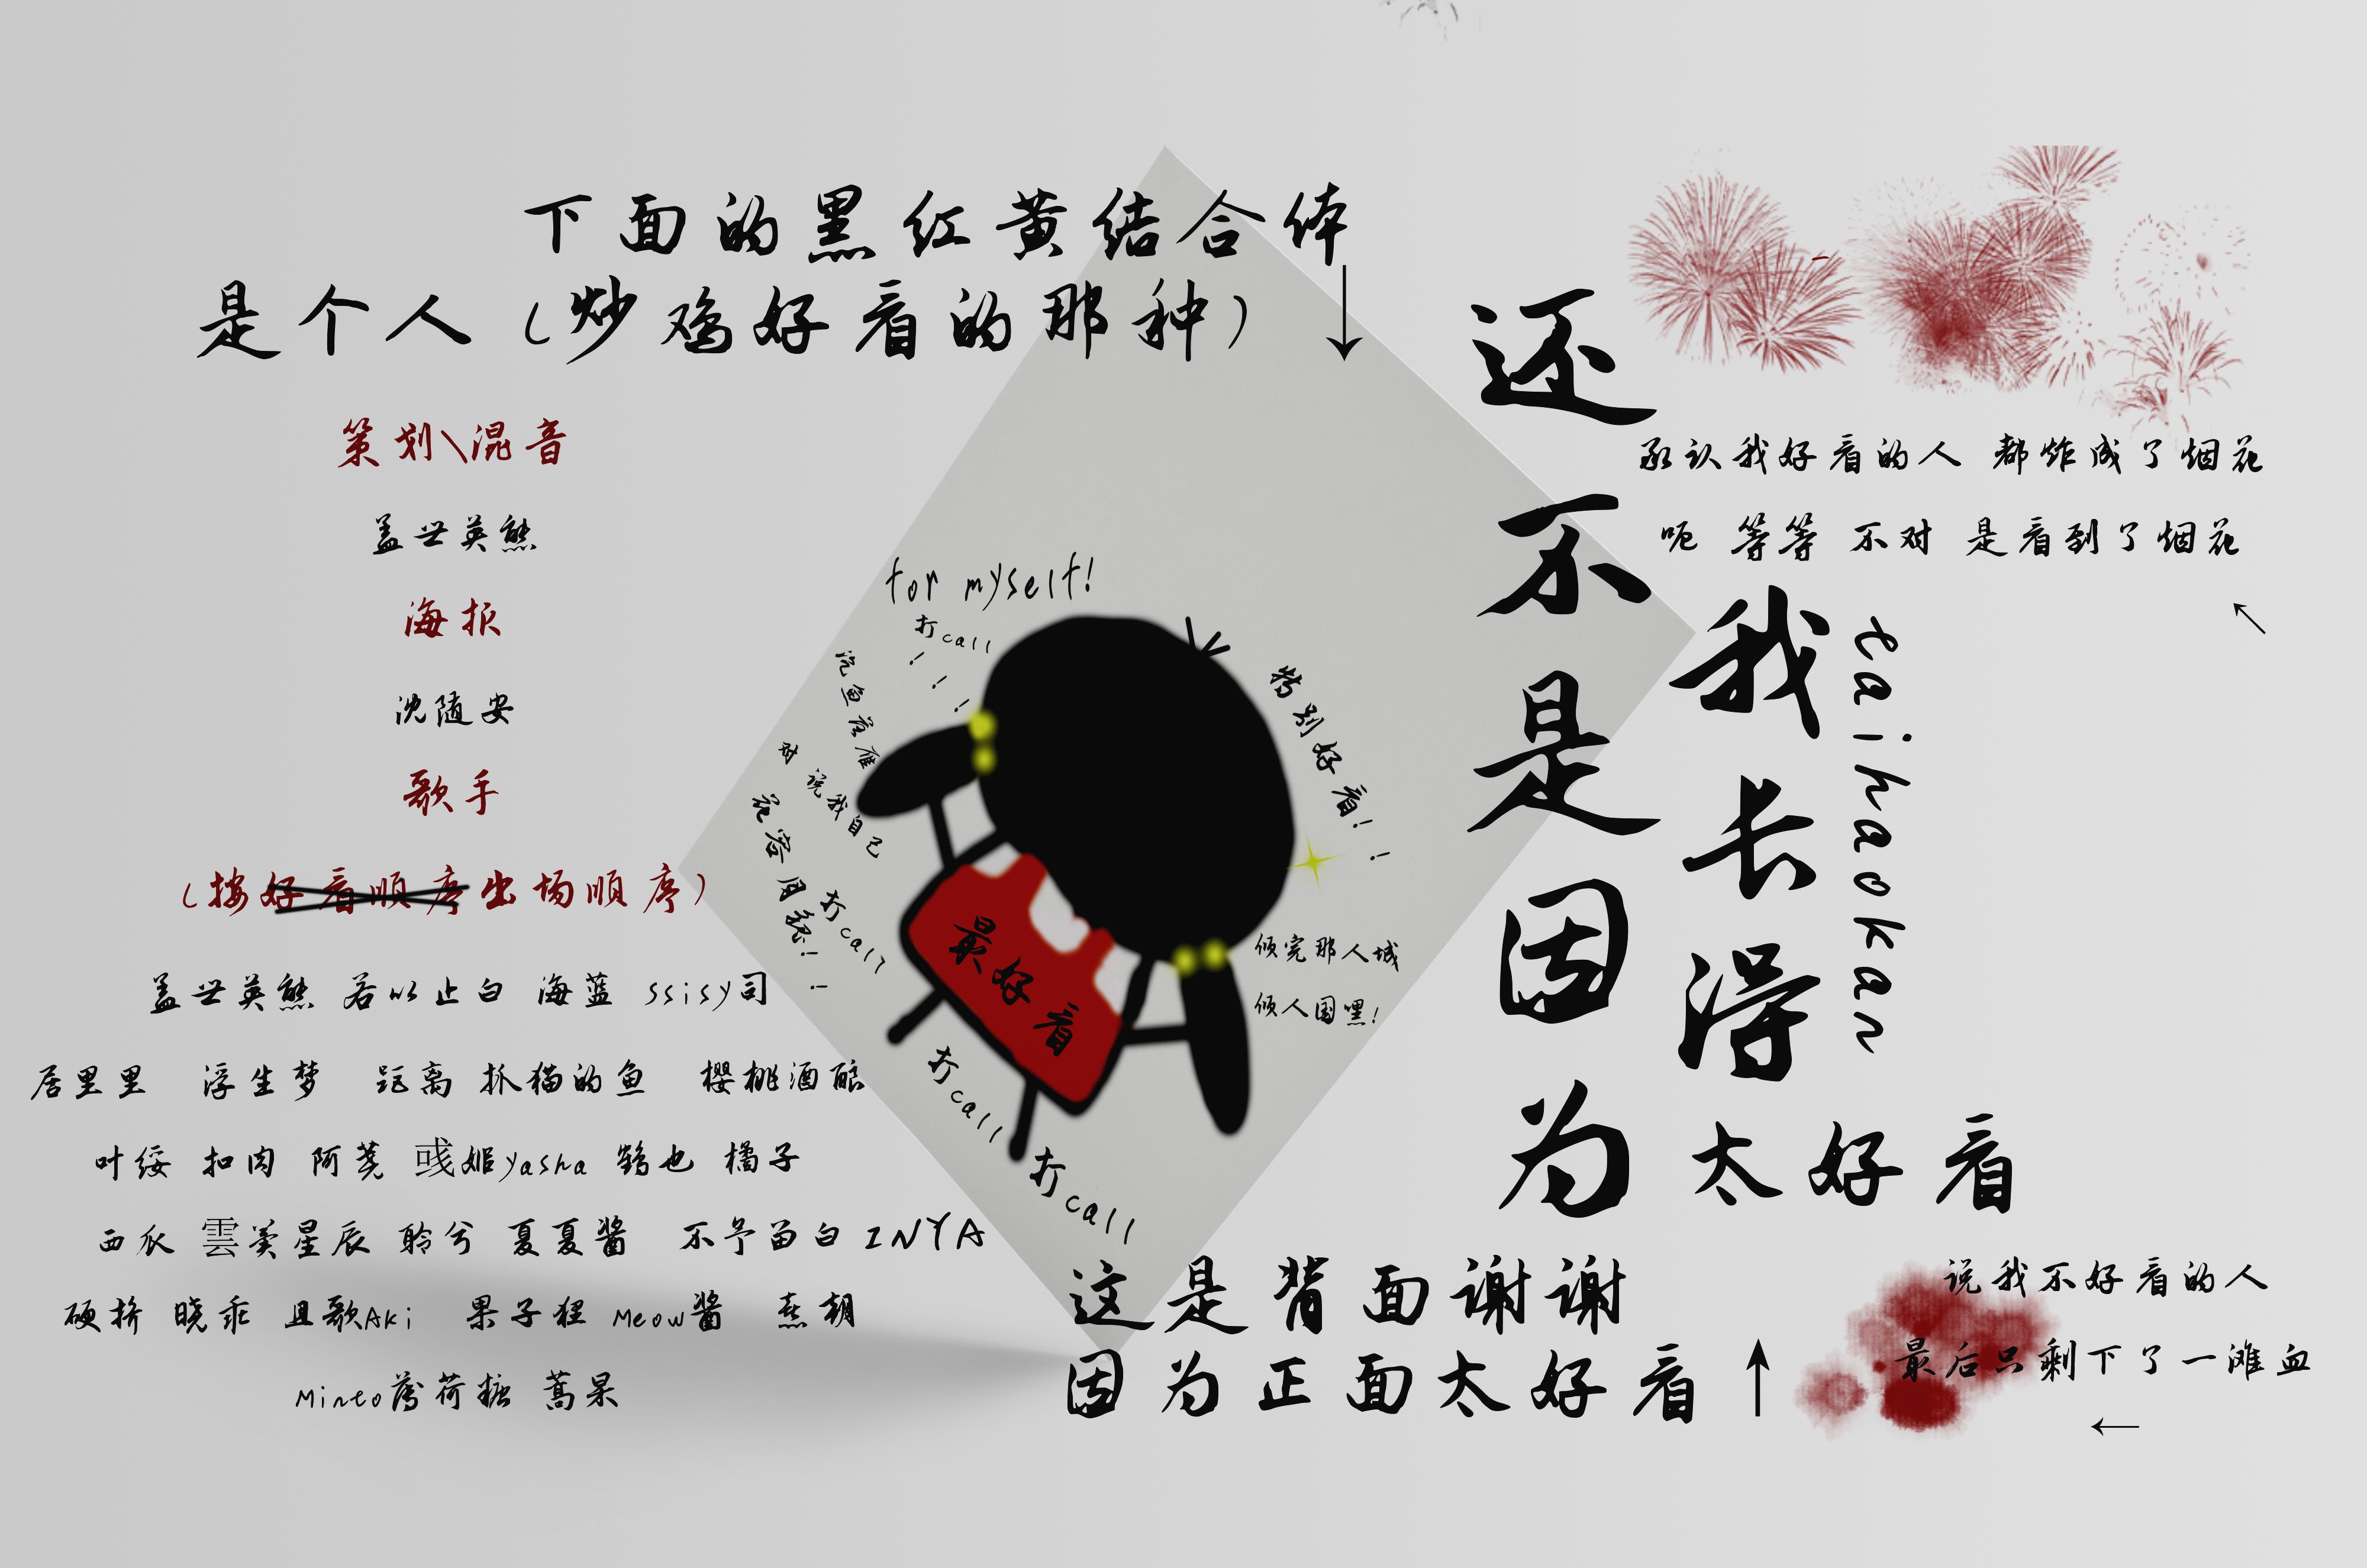 下面的黑红黄结合体
是个人（炒鸡好看的那种）
↓
策划\混音
盖世英熊
海报
沈随安
歌手
（按好看顺序出场顺序）
盖世英熊 若以止白 海蓝 ssisy司
居里里 浮生梦 距离 抓猫的鱼 樱桃酒酿
叶绥 扣肉 阿荛 彧姬yasha 鹤也 橘子
西瓜 雲美星辰 聆兮 夏夏酱 不予留白 INYA
硬挤 晓乖 且歌Aki 果子狸 Meow酱 熹朝
Minto薄荷糖 蒿杲
for myself!
打call
！！！
沉鱼落雁
对 说我自己
花容月貌！！
打call
特别好看！！
最好看
倾完那人城
倾人国嘿！
打call
打call
还不是因为
我长得
taihaokan
太好看
承认我好看的人 都炸成了烟花
呃 等等 不对 是看到了烟花
↖
这是背面谢谢
因为正面太好看
↑
说我不好看的人
最后只剩下了一滩血
←